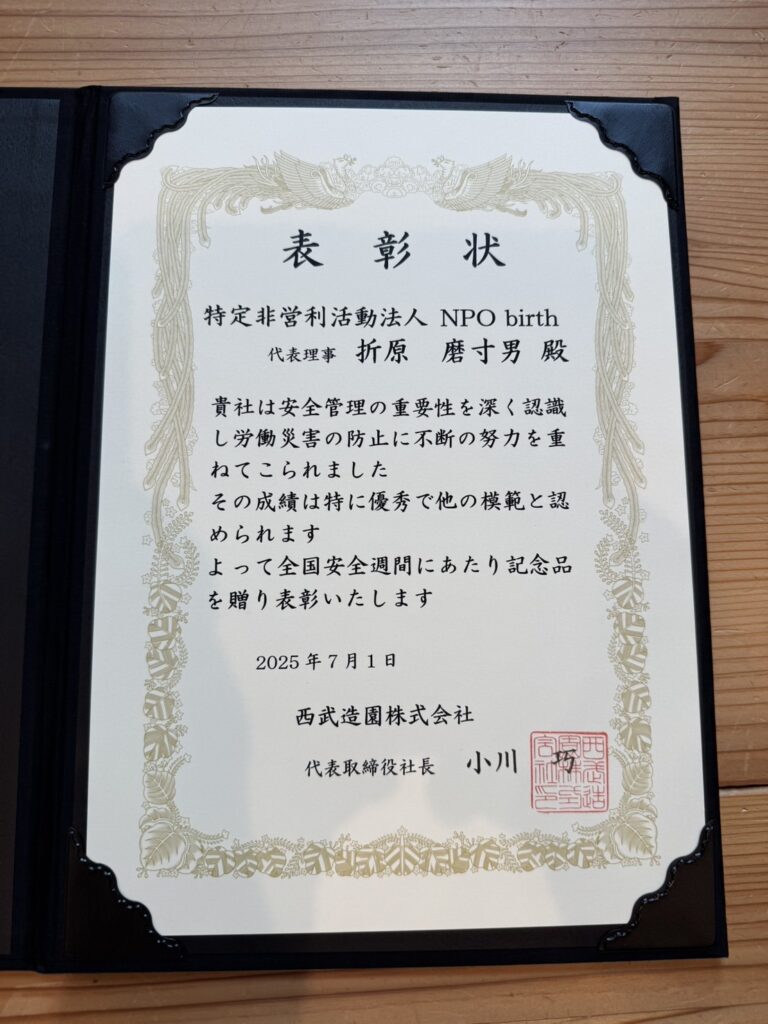 表 彰 状
特定非営利活動法人 NPO birth
代表理事 折原 磨寸男 殿
貴社は安全管理の重要性を深く認識
し労働災害の防止に不断の努力を重
ねてこられました
その成績は特に優秀で他の模範と認
められます
よって全国安全週間にあたり記念品
を贈り表彰いたします
2025年7月1日
西武造園株式会社
代表取締役社長 小川 巧